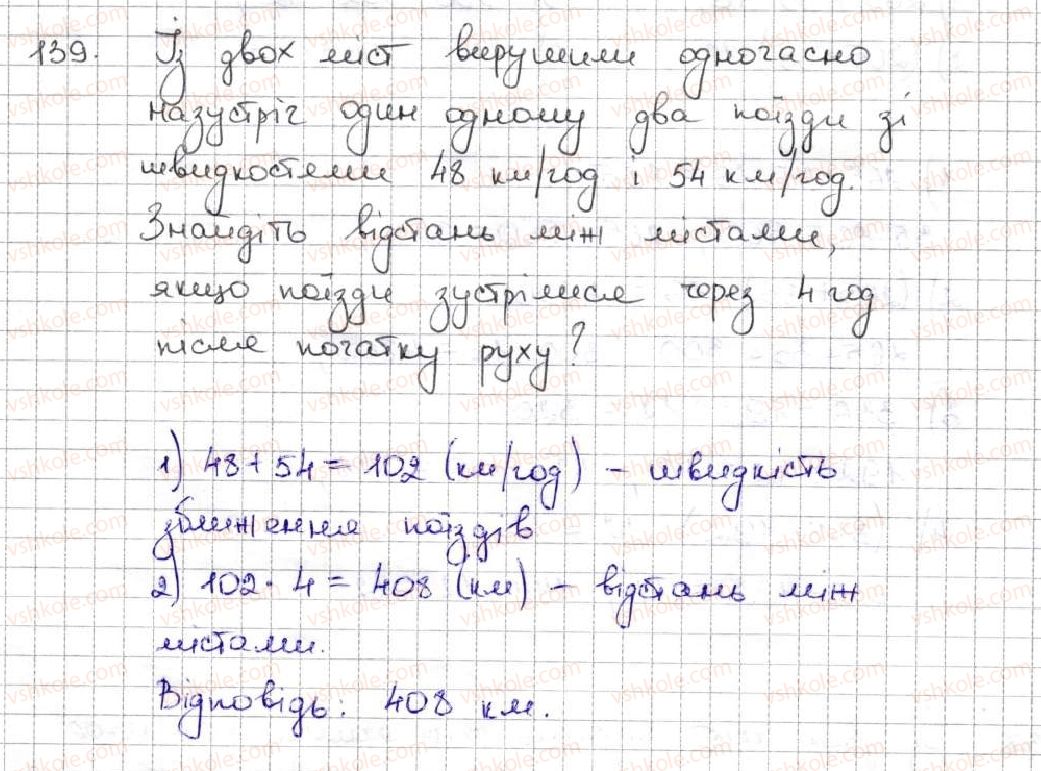 139. Із двох міст вирушили одночасно
назустріч один одному два поїзди зі
швидкостями 48 км/год і 54 км/год.
Знайдіть відстань між містами,
якщо поїзди зустрілися через 4 год
після початку руху?
1) 48 + 54 = 102 (км/год) – швидкість
зближення поїздів
2) 102 · 4 = 408 (км) – відстань між
містами.
Відповідь: 408 км.